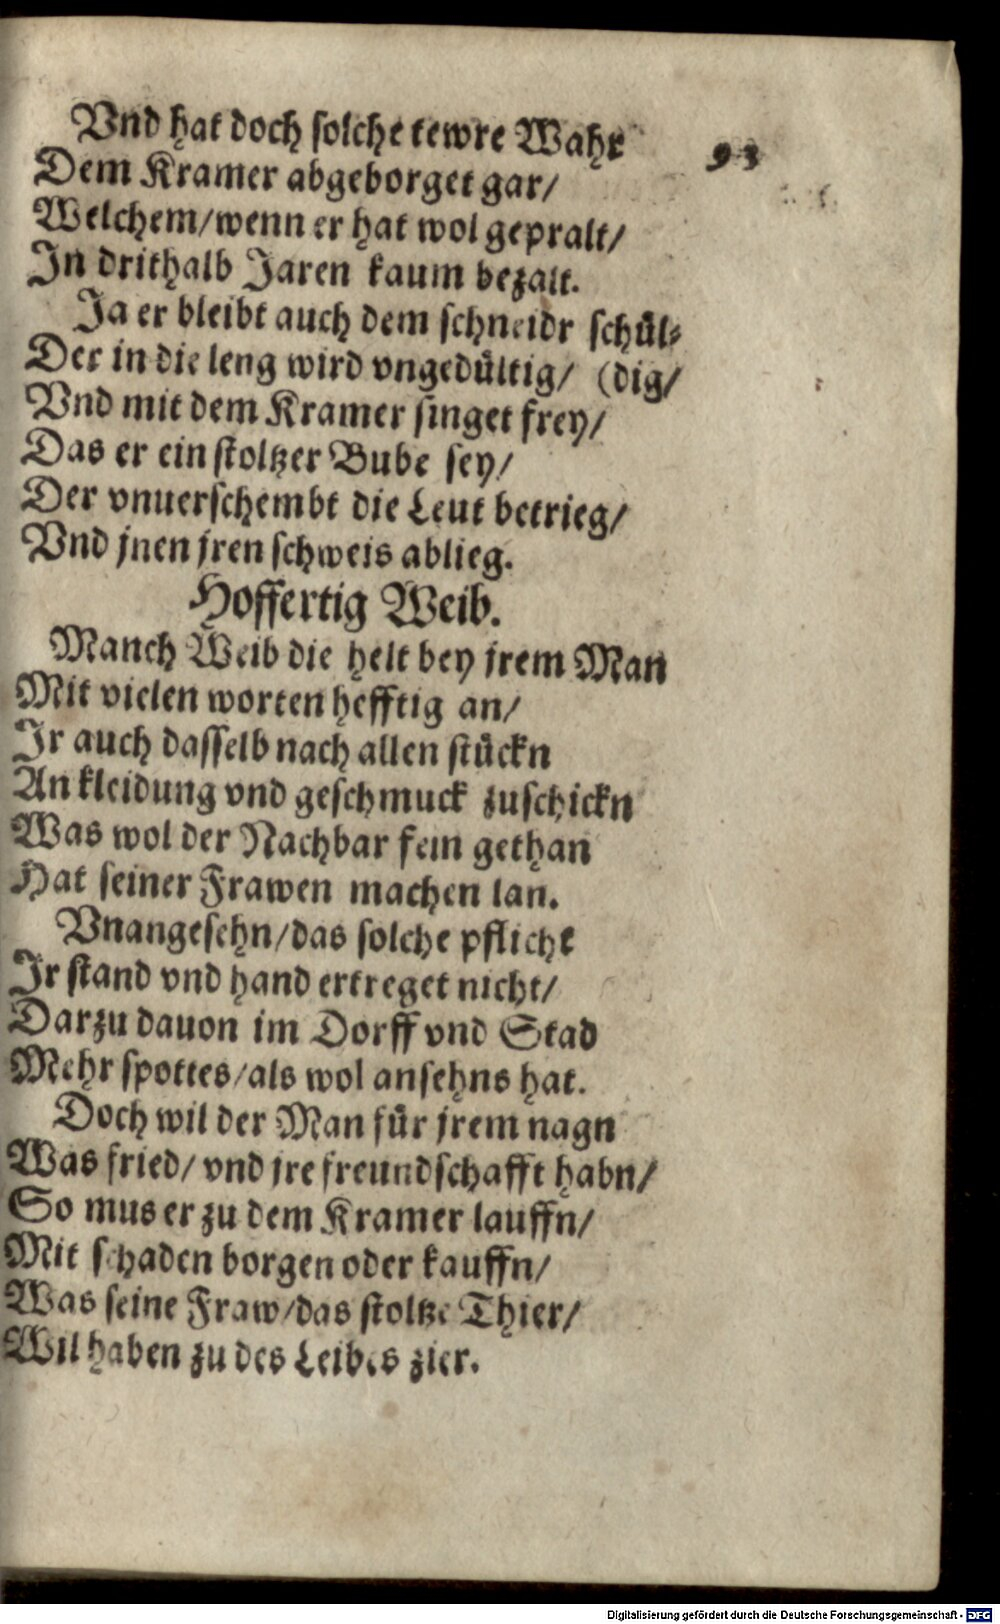 Vnd hat doch solche tewre Wahr
93
Dem Kramer abgeborget gar/
Welchem/wenn er hat wol gepralt/
In drithalb Jaren kaum bezalt.
Ja er bleibt auch dem schneidr schül-
Der in die leng wird vngedültig/ (dig/
Vnd mit dem Kramer singet frey/
Das er ein stoltzer Bube sey/
Der vnuerschembt die Leut betrieg/
Vnd jnen jren schweis ablieg.
Hoffertig Weib.
Manch Weib die helt bey jrem Man
Mit vielen worten hefftig an/
Ir auch dasselb nach allen stückn
An kleidung vnd geschmuck zuschickn
Was wol der Nachbar fein gethan
Hat seiner Frawen machen lan.
Vnangesehn/das solche pflicht
Ir stand vnd hand ertreget nicht/
Darzu dauon im Dorff vnd Stad
Mehr spottes/als wol ansehns hat.
Doch wil der Man für jrem nagn
Was fried/ vnd jre freundschafft habn/
So mus er zu dem Kramer lauffn/
Mit schaden borgen oder kauffn/
Was seine Fraw/das stoltze Thier/
Wil haben zu des Leibes zier.
Digitalisierung gefördert durch die Deutsche Forschungsgemeinschaft - DFG